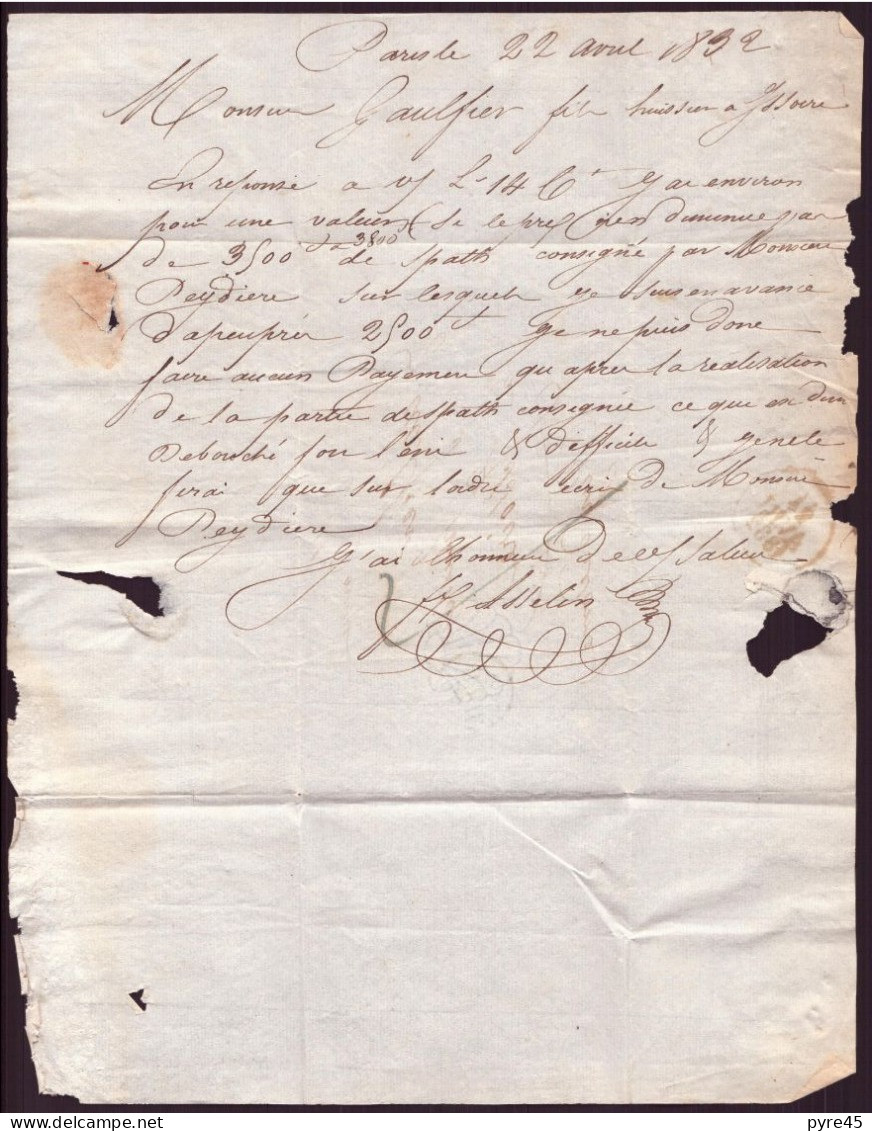 Paris le 22 avril 1832
Monsieur Gaulfier fils huissier a Yssoire
En reponse a v/ L. 14 Ct. J ai environ
pour une valeur (si le prix n'en diminue pas
a 3800
de 3500 de spath consigné par Monsieur
Peydiere sur lesquels je suis en avance
d apeuprés 2500 f je ne puis donc
faire aucun Payement qu apres la realisation
de la partie de spath consignée ce que est d un
Debouché fort lent & difficile & je ne le
ferai que sur l ordre ecri de Monsieur
Peydiere
J'ai l'honneur de vs saluer
Asselin
pyre45